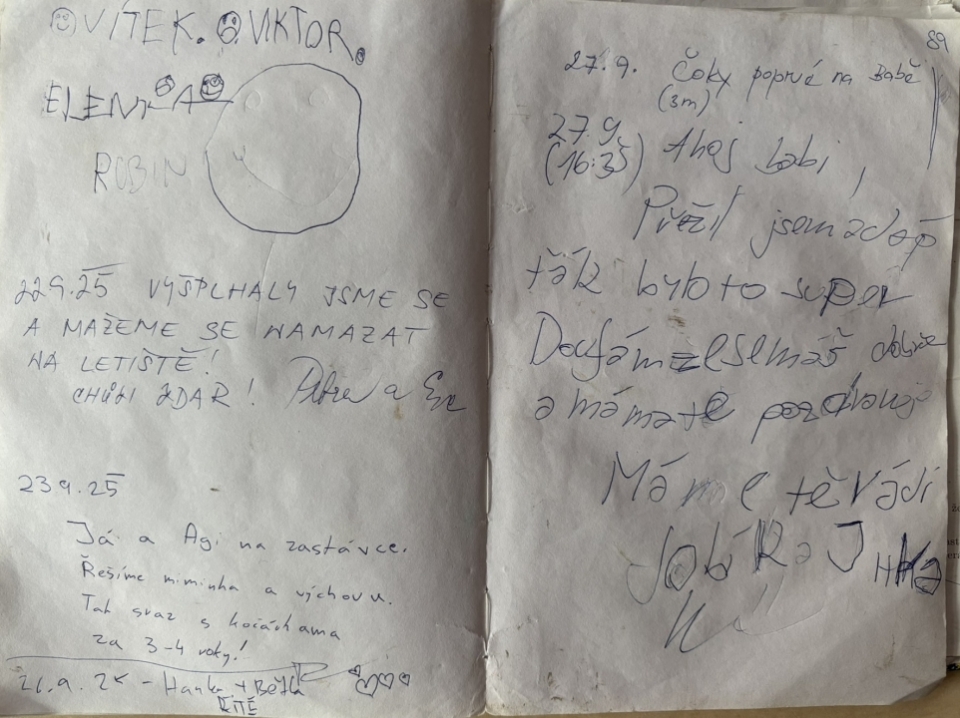 VÍTEK. VIKTOR.
ELENKA
ROBIN
22.9.25 VYŠPLHALY JSME SE
A MAŽEME SE NAMAZAT
NA LETIŠTĚ!
CHŮZI ZDAR! Petra a
23.9.25
Já a Agi na zastávce.
Řešíme miminka a výchovu.
Tak sraz s kočáchama
za 3-4 roky!
26.9.25 - Hanka + Běťka
89
27.9. Čoky poprvé na Babě
(3m)
27.9.
(16:35) Ahoj babi,
Přežil jsem zdap
ťák bylo to super
Doufám že se máš dobře
a máma tě pozdravuje
Máme tě rádi
Jobík a